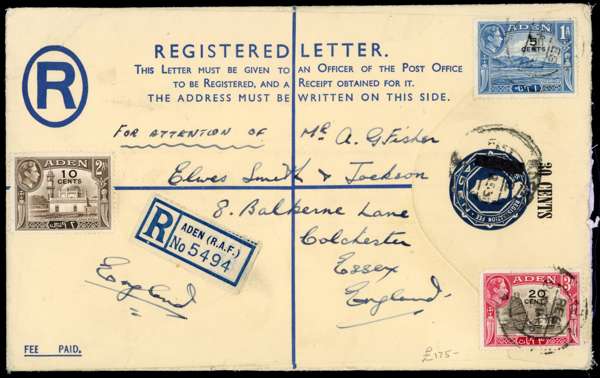 REGISTERED LETTER.
THIS LETTER MUST BE GIVEN TO AN OFFICER OF THE POST OFFICE
TO BE REGISTERED, AND A RECEIPT OBTAINED FOR IT.
THE ADDRESS MUST BE WRITTEN ON THIS SIDE.
R
ADEN 1A
5
CENTS
FOR ATTENTION OF Mr A. G. Fisher
ADEN 2A
10
CENTS
Elwes Smith & Jackson
8. Balkerne Lane
Colchester
Essex
England.
R ADEN (R.A.F.)
No 5494
England
REGISTRATION FEE
20 CENTS
ADEN 3A
20
CENTS
FEE PAID.
£175-